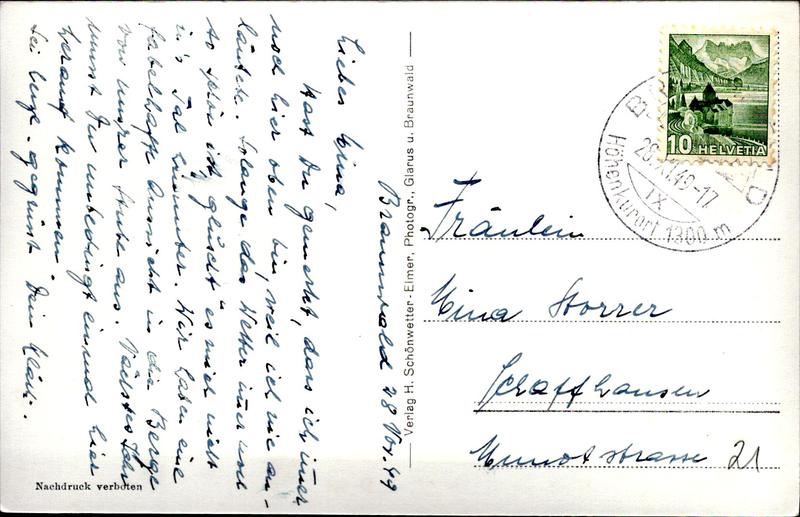 Braunwald 28 Nov. 49
Liebes Mina,
Hast Du gemerkt, dass ich immer
noch hier oben bin, weil ich nie an-
läutete. Solange das Wetter immer noch
so schön ist, gluscht es mich nicht
in's Tal hinunter. Wir haben eine
fabelhafte Aussicht in die Berge
von unserer Hütte aus. Nächstes Jahr
musst Du unbedingt einmal hier
herauf kommen.
Sei herzl. gegrüsst Dein Kläri.
Nachdruck verboten
Verlag H. Schönwetter-Elmer, Photogr., Glarus u. Braunwald
10 HELVETIA
IX
Höhenkurort 1300 m
Fräulein
Mina Storrer
Schaffhausen
Munotstrasse 21